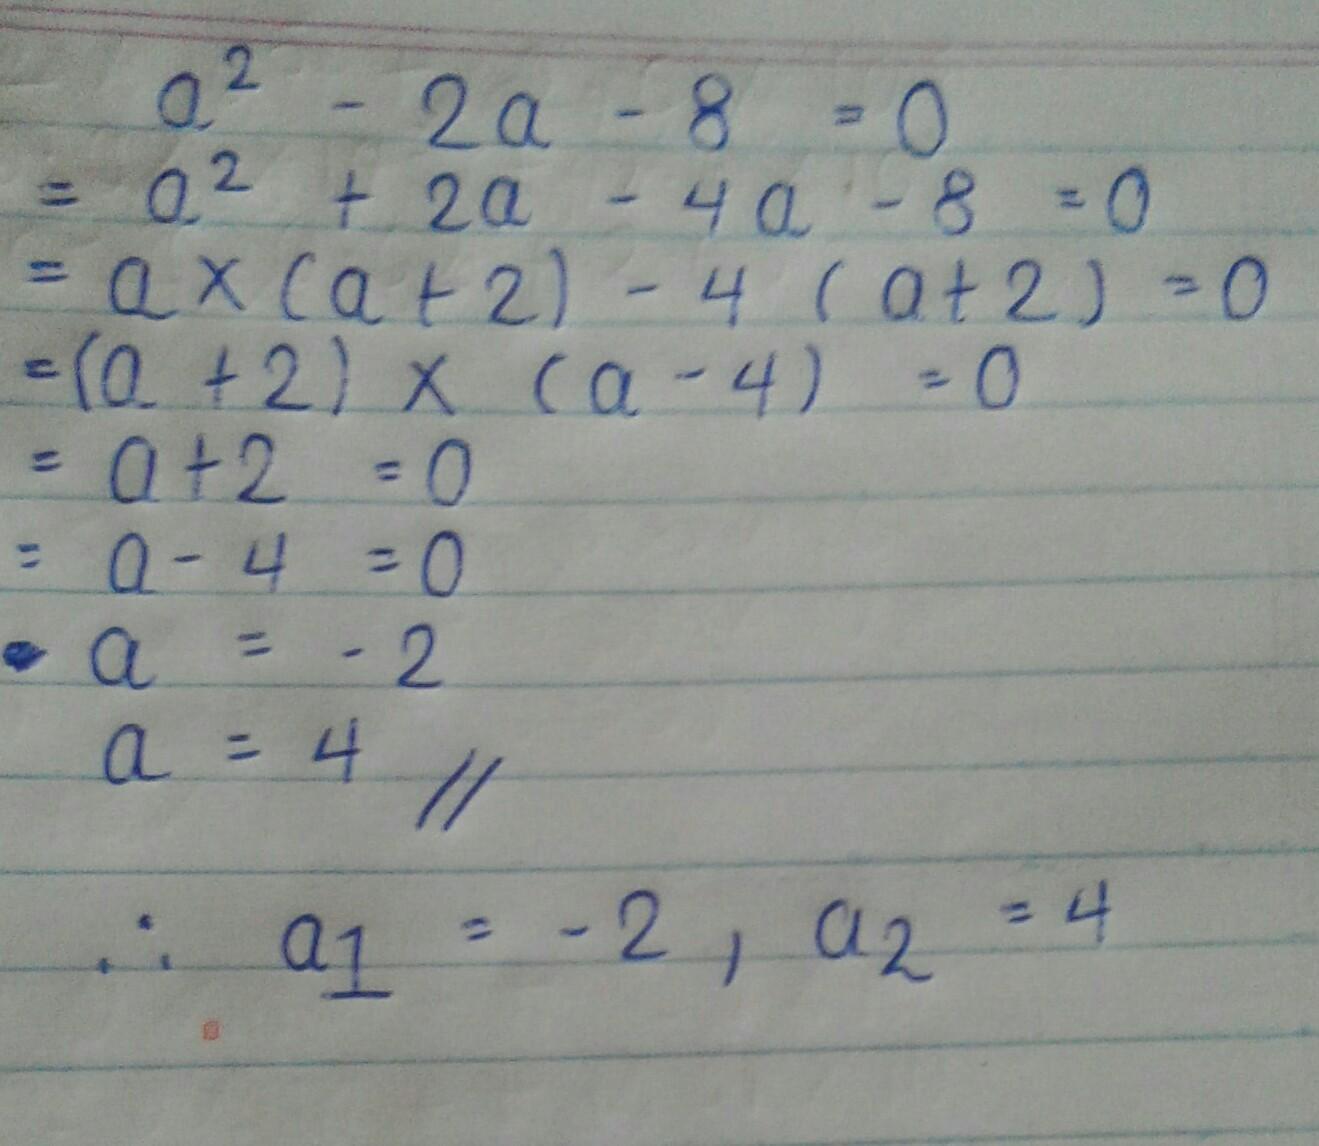 a² - 2a - 8 = 0
= a² + 2a - 4a - 8 = 0
= a × (a + 2) - 4 (a + 2) = 0
= (a + 2) × (a - 4) = 0
= a + 2 = 0
= a - 4 = 0
a = -2
a = 4 //
∴ a₁ = -2, a₂ = 4